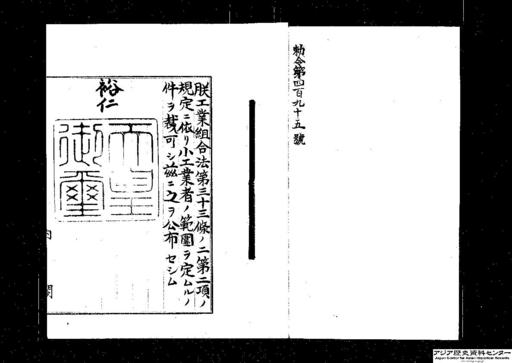 勅令第四百九十五號
朕工業組合法第三十三條ノ二第二項ノ
規定ニ依リ小工業者ノ範圍ヲ定ムルノ
件ヲ裁可シ茲ニ之ヲ公布セシム
裕仁
天皇
御璽
内閣
アジア歴史資料センター
Japan Center for Asian Historical Records